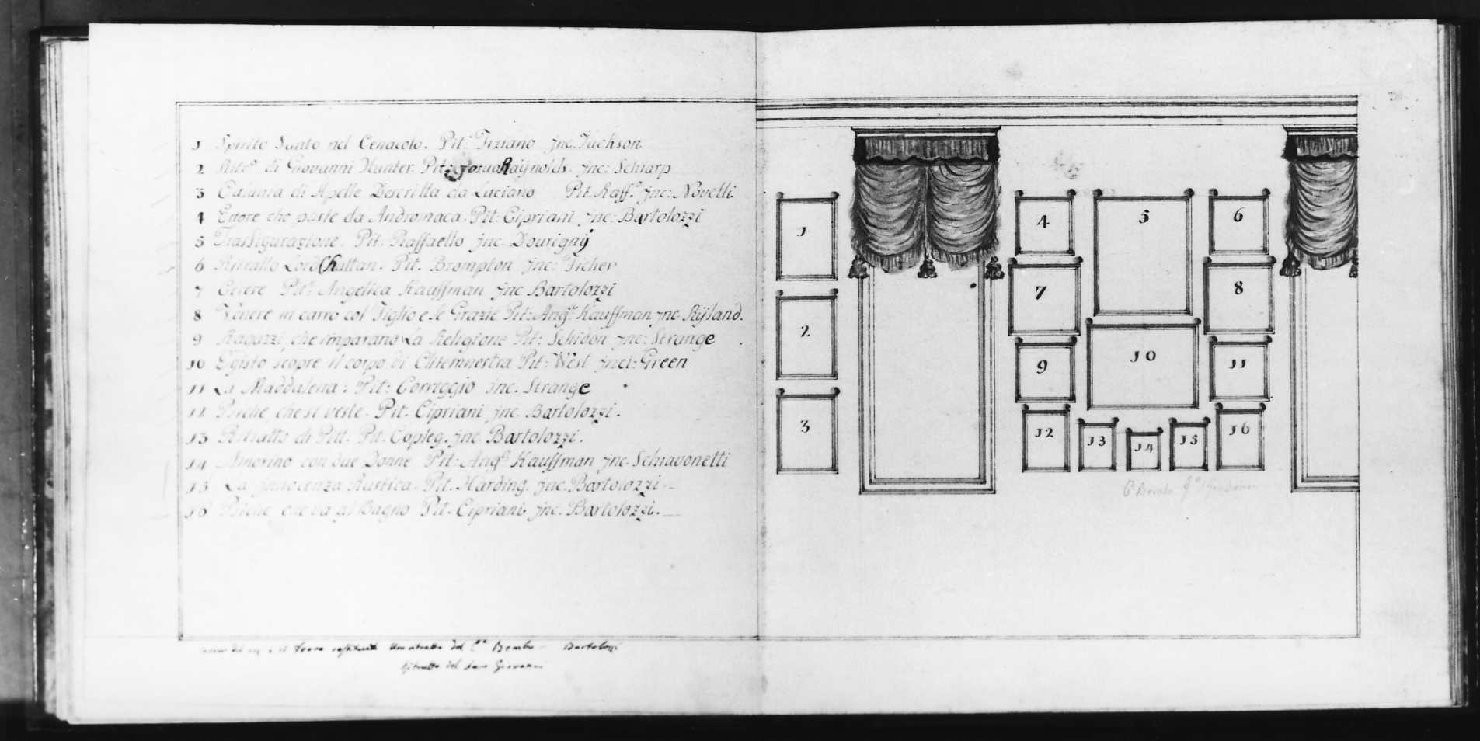 1 Spirito Santo nel Cenacolo. Pit. Tiziano Jnc. Jackson
2 Rito. di Giovanni Hunter. Pit: Josua Raynolds. Jnc: Schiarp
3 Camara di Apelle Descritta da Luciano Pit. Raff. Jnc: Novelli
4 Ettore che parte da Andromaca. Pit. Cipriani Jnc: Bartolozzi
5 Trasfigurazione. Pit. Raffaello Jnc. Dorigny
6 Ritratto Lord Chattan. Pit. Brompton Jnc: Ficher
7 Pit: Angelica Kauffman Jnc Bartolozzi
8 Venere in carro col Figlio e le Grazie Pit: Ang. Kauffman Jnc Rijland.
9 Ragazzi che imparano La Religione Pit: Schidon Jnc: Strange
10 Egisto scopre il corpo di Clitemnestra Pit: West Jnci: Green
11 La Maddalena. Pit: Correggio Jnc. Strange
12 Psiche che si veste. Pit. Cipriani Jnc. Bartolozzi.
13 Ritratto di Pitt. Pit. Copleg. Jnc. Bartolozzi.
14 Amorino con due Donne Pit: Ang. Kauffman Jnc. Schiavonetti
15 La Jnnocenza Rustica. Pit. Harding. Jnc. Bartolozzi.
16 Psiche che va al Bagno Pit. Cipriani Jnc. Bartolozzi.
del Bembo Bartolozzi
Ritratto del Giovanni
1
2
3
4
5
6
7
8
9
10
11
12
13
14
15
16
Bembo